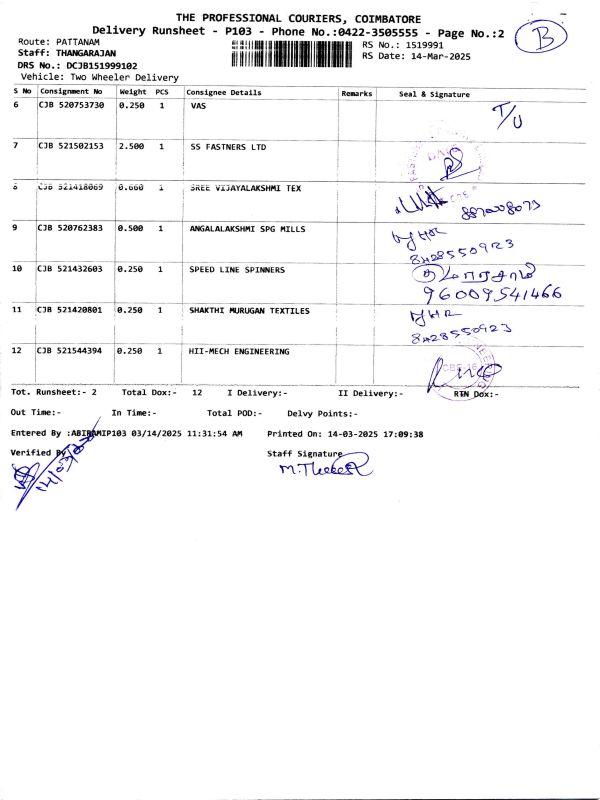 THE PROFESSIONAL COURIERS, COIMBATORE
Delivery Runsheet - P103 - Phone No.:0422-3505555 - Page No.:2
B
Route: PATTANAM
RS No.: 1519991
Staff: THANGARAJAN
RS Date: 14-Mar-2025
DRS No.: DCJB151999102
Vehicle: Two Wheeler Delivery
S No Consignment No Weight PCS Consignee Details Remarks Seal & Signature
6 CJB 520753730 0.250 1 VAS T/U
7 CJB 521502153 2.500 1 SS FASTNERS LTD
8 CJB 521418069 0.660 1 SREE VIJAYALAKSHMI TEX
9 CJB 520762383 0.500 1 ANGALALAKSHMI SPG MILLS
8428550923
10 CJB 521432603 0.250 1 SPEED LINE SPINNERS
96009541466
11 CJB 521420801 0.250 1 SHAKTHI MURUGAN TEXTILES
8428550923
12 CJB 521544394 0.250 1 HII-MECH ENGINEERING
Tot. Runsheet:- 2 Total Dox:- 12 I Delivery:- II Delivery:- RTN Dox:-
Out Time:- In Time:- Total POD:- Delvy Points:-
Entered By :ABIRAMIP103 03/14/2025 11:31:54 AM Printed On: 14-03-2025 17:09:38
Verified By Staff Signature